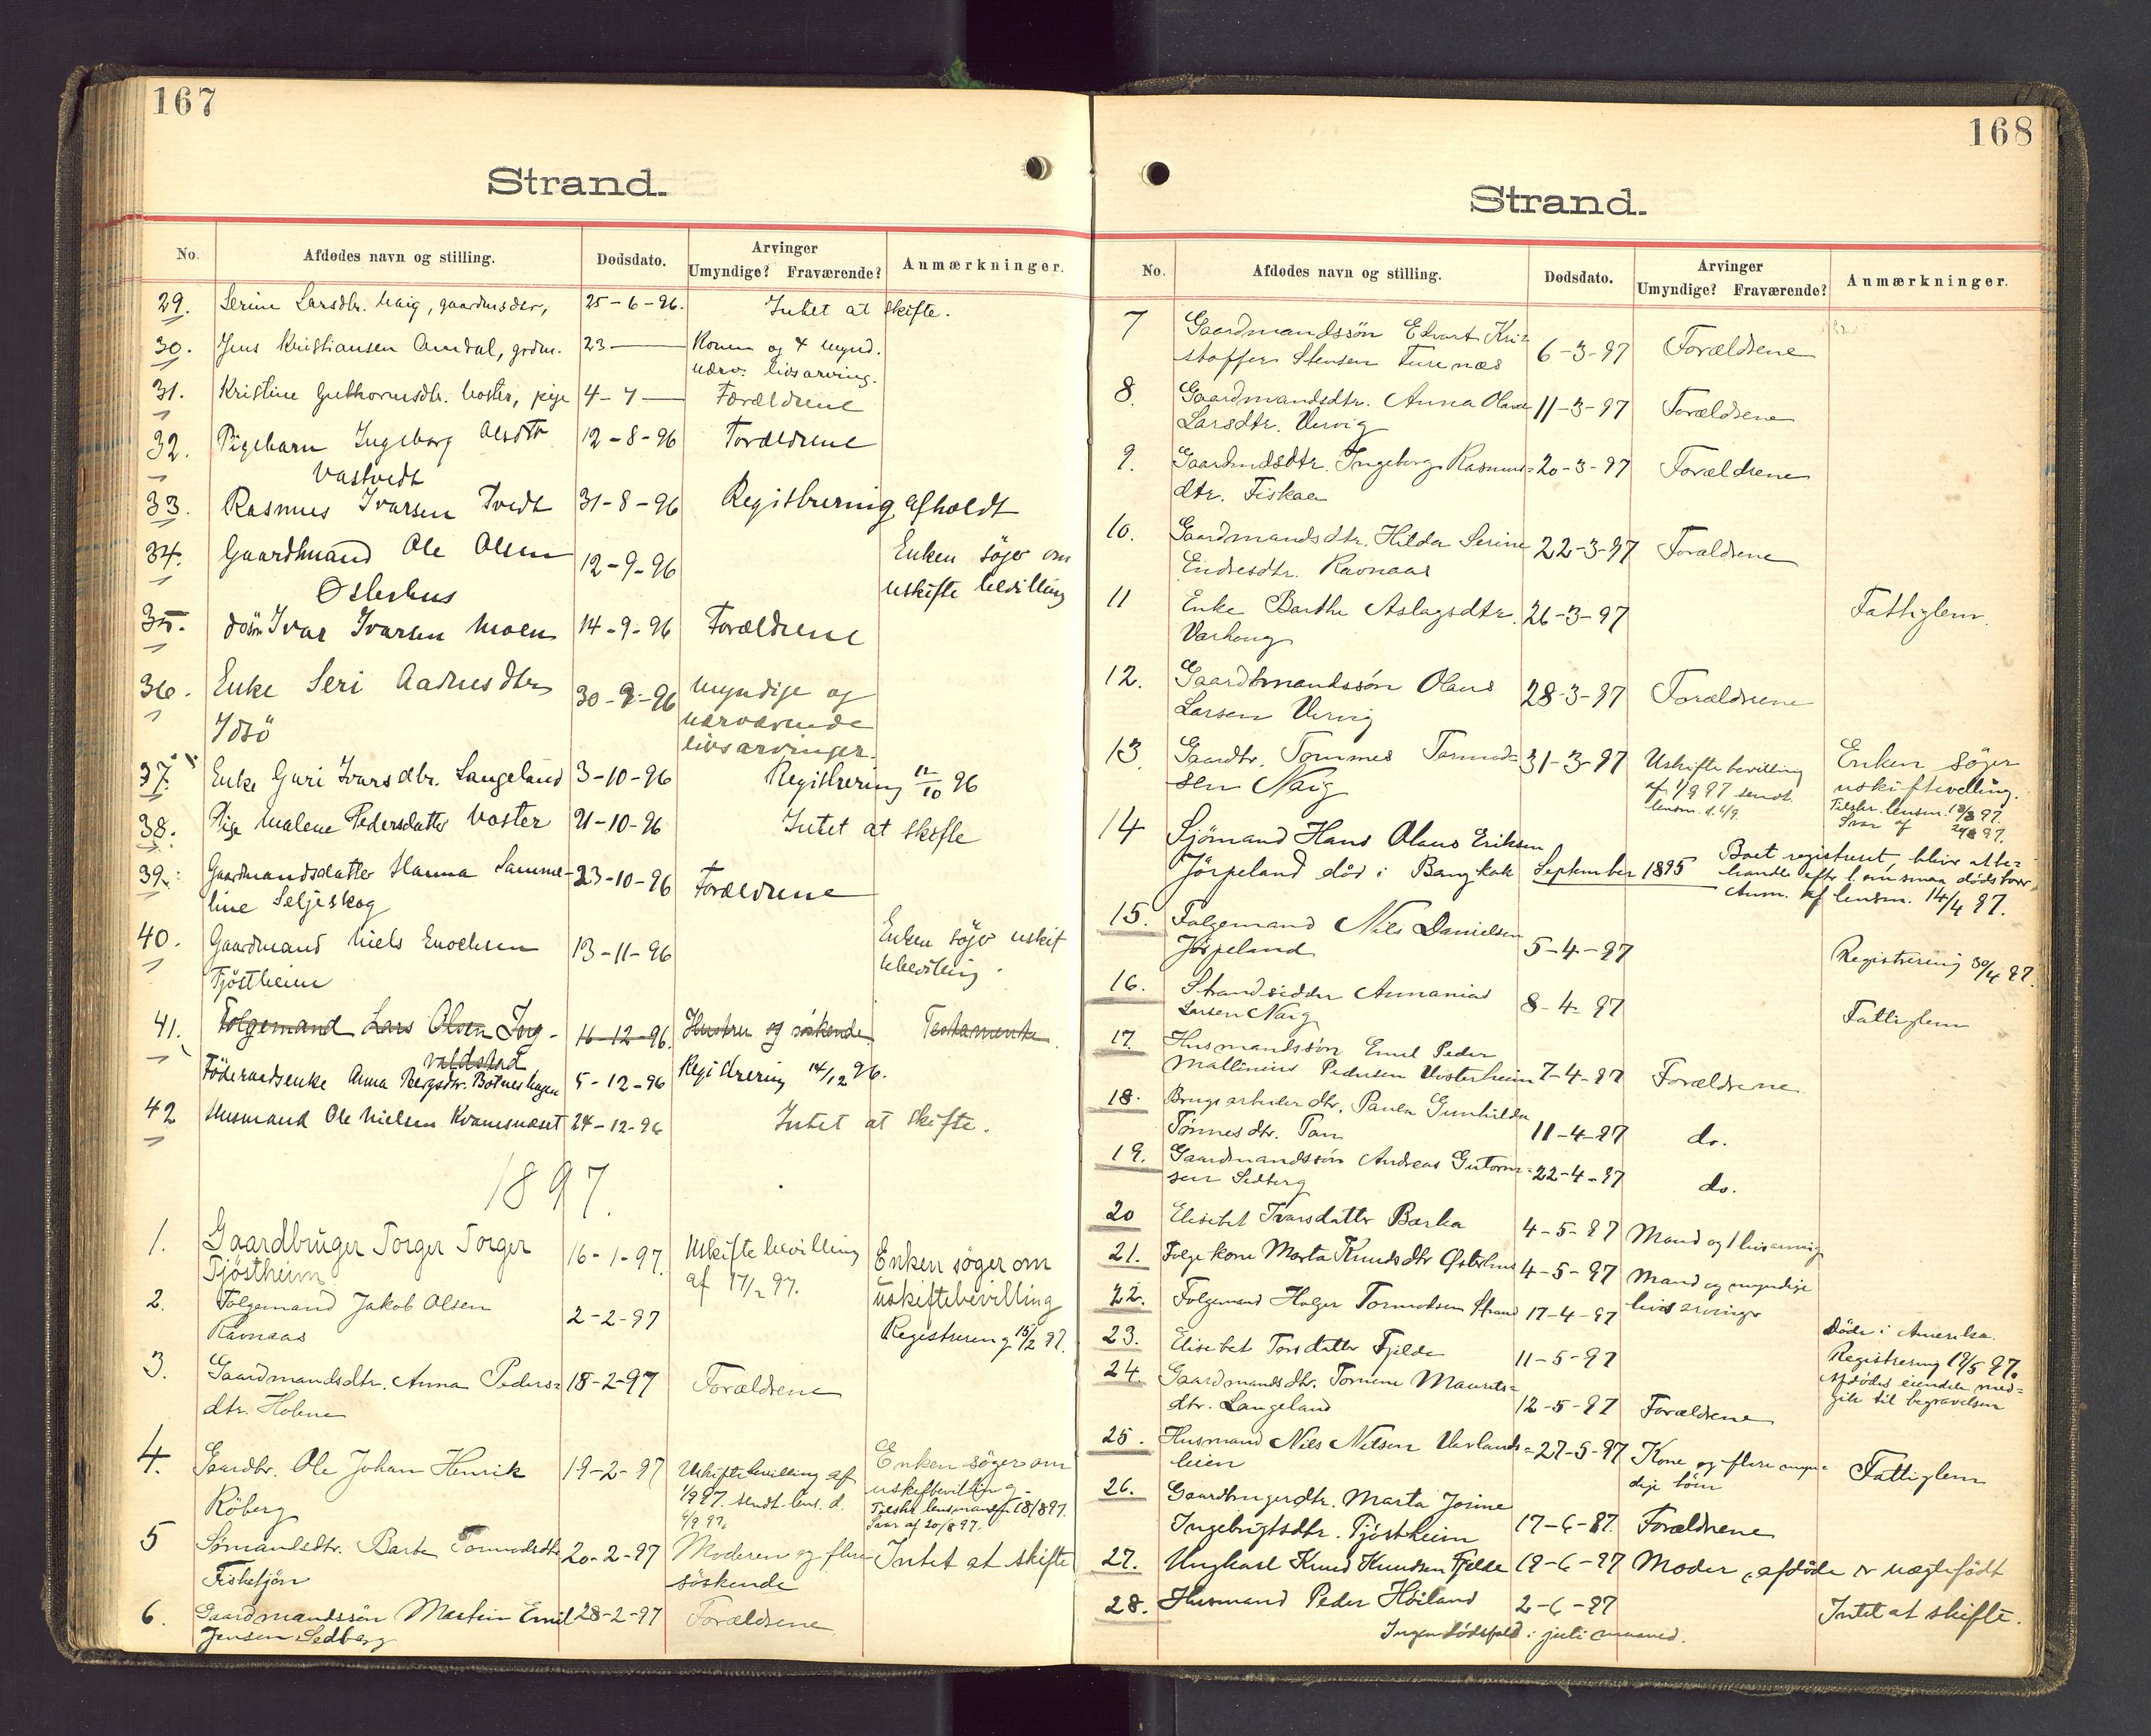 167
Strand.
No. Afdødes navn og stilling. Dødsdato. Arvinger Umyndige? Fraværende? Anmærkninger.
29. Serine Larsdtr. Naig, 25-6-96. Intet at skifte.
30. Jens Kristiansen Amdal, grdm. 23 — Konen og 4 mynd.
nærv. livsarving.
31. Kristine Guthormsdtr. Voster, pige 4-7 — Forældrene
32. Pigebarn Ingeborg Olsdtr 12-8-96 Forældrene
Vastvedt
33. Rasmus Ivarsen Tvedt 31-8-96 Registrering afholdt
34. Gaardmand Ole Olsen 12-9-96 Enken söger om
Østerhus uskifte bevilling
35. Ivar Ivarsen Moen 14-9-96 Forældrene
36. Enke Seri Aadnesdtr 30-9-96 Myndige og
Idsö nærværende
livsarvinger.
37. Enke Guri Ivarsdtr. Langeland 3-10-96 Registrering 12/10 96
38. Pige Malene Pedersdatter Voster 21-10-96 Intet at skifte
39. Gaardmandsdatter Hanna Samme- 23-10-96 Forældrene
line Seljeskog
40. Gaardmand Niels Enochsen 13-11-96 Enken söger uskif
Tjöstheim tebevilling.
41. Folgemand Lars Olsen Ing- 16-12-96. Hustru og söskende Testamente.
valdstad
Föderaadsenke Anna Bergsdtr. Botneshagen 5-12-96 Registrering 14/12 96.
42 Husmand Ole Nielsen Kvamsnæset 24-12-96 Intet at skifte.
1897.
1. Gaardbruger Torger Torger 16-1-97. Uskiftebevilling Enken söger om
Tjöstheim. af 17/2 97. uskiftebevilling
2. Folgemand Jakob Olsen 2-2-97
Ravnaas Registrering 15/2 97.
3. Gaardmandsdtr. Anna Peders= 18-2-97 Forældrene
dtr. Holene
4. Gaardbr. Ole Johan Henrik 19-2-97 Uskiftebevilling af Enken söger om
Röberg 1/9 97. sendt lens. d. uskiftbevilling.
6/9 97. Tilskr. lensmanden 18/8 97.
Svar af 20/8 97.
5 Sömandsdtr. Barte Tormodsdtr. 20-2-97 Moderen og flere Intet at skifte
Fisketjön söskende
6. Gaardmandssön Martin Emil 28-2-97 Forældrene
Jensen Sedberg
168
Strand.
No. Afdødes navn og stilling. Dødsdato. Arvinger Umyndige? Fraværende? Anmærkninger.
7 Gaardmandssön Edvart Kri= 6-3-97 Forældrene
stoffer Stensen Turenæs
8. Gaardmandsdtr. Anna Olava 11-3-97 Forældrene
Larsdtr. Vervig
9. Gaardmdsdtr. Ingeborg Rasmus= 20-3-97 Forældrene
dtr. Fiskaa
10. Gaardmandsdtr. Hilda Serine 22-3-97 Forældrene
Endresdtr. Ravnaas
11 Enke Barthe Aslagsdtr. 26-3-97 Fattiglem.
Varhoug
12. Gaardmandssön Olaus 28-3-97 Forældrene
Larsen Vervig
13. Gaardbr. Tommes Tormod= 31-3-97 Uskiftebevilling Enken söger
sen Naig af 1/9 97 sendt uskiftevelling.
lensm. d. 6/9. Tilskr. lensm. 18/8 97.
Svar af 20/8 97.
14 Sjömand Hans Olaus Eriksen
Jörpeland död i Bangkok September 1895 Boet registreret, blir atte=
handle efter l. om smaa dödsboer
Anm. af lensm. 14/4 97.
15. Folgemand Nils Danielsen
Jörpeland 5-4-97 Registrering 30/4 97.
16. Strandsidder Annanias 8-4-97 Fattiglem
Larsen Naig
17. Husmandssön Emil Peder
Mallinius Pedersen Vosterheim 7-4-97 Forældrene
18. Brugsarbeider dtr. Paula Gunhilda
Tönnesdtr. Tau 11-4-97 do.
19. Gaardmandssön Andreas Gutorm= 22-4-97 do.
sen Sedberg
20 Elisebet Ivarsdatter Barka 4-5-97 Mand og 1 livsarving
21. Folgekone Marta Knudsdtr Østerhus 4-5-97 Mand og myndige
livsarvinger
22. Folgemand Holger Tormodsen Strand 17-4-97
23. Elisebet Torsdatter Fjelde 11-5-97 Döde i Amerika.
Registrering 19/5 97.
24. Gaardmandsdtr. Tomine Maurits= 12-5-97 Forældrene Afdödes eiendele med=
dtr. Langeland gik til begravelsen
25. Husmand Nils Nilsen Verlands= 27-5-97 Kone og flere myn= Fattiglem
leien dige börn
26. Gaardbrugerdtr. Marta Josine
Ingebrigtsdtr. Tjöstheim 17-6-97. Forældrene
27. Ungkarl Knud Knudsen Fjelde 19-6-97 Moder, afdöde er uægtefödt
28. Husmand Peder Höiland 2-6-97 Intet at skifte.
Ingen dödsfald i juli maaned.